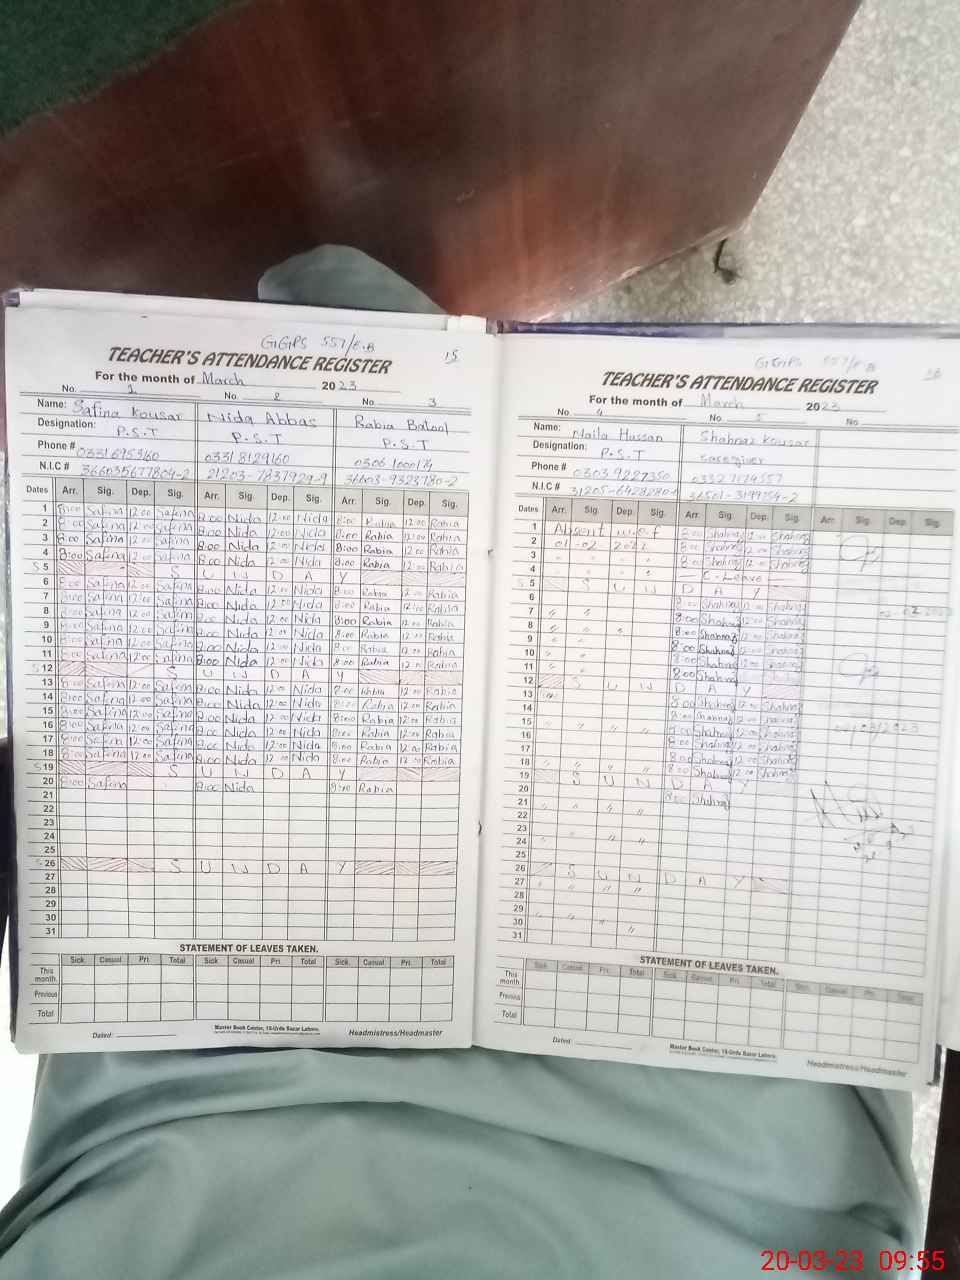 GGPS 557/E.B
15
TEACHER'S ATTENDANCE REGISTER
For the month of March 2023
No. 1 No. 2 No. 3
Name: Safina Kousar Nida Abbas Rabia Batool
Designation: P.S.T P.S.T P.S.T
Phone # 03316953160 03318129160
N.I.C # 366035677804-2 21203-7837929-9 36603-9323780-2
Dates Arr. Sig. Dep. Sig. Arr. Sig. Dep. Sig. Arr. Sig. Dep. Sig.
1 8:00 Safina 12:00 Safina 8:00 Nida 12:00 Nida 8:00 Rabia 12:00 Rabia
2 8:00 Safina 12:00 Safina 8:00 Nida 12:00 Nida 8:00 Rabia 12:00 Rabia
3 8:00 Safina 12:00 Safina 8:00 Nida 12:00 Nida 8:00 Rabia 12:00 Rabia
4 8:00 Safina 12:00 Safina 8:00 Nida 12:00 Nida 8:00 Rabia 12:00 Rabia
S 5 S U N D A Y
6 8:00 Safina 12:00 Safina 8:00 Nida 12:00 Nida 8:00 Rabia 12:00 Rabia
7 8:00 Safina 12:00 Safina 8:00 Nida 12:00 Nida 8:00 Rabia 12:00 Rabia
8 8:00 Safina 12:00 Safina 8:00 Nida 12:00 Nida 8:00 Rabia 12:00 Rabia
9 8:00 Safina 12:00 Safina 8:00 Nida 12:00 Nida 8:00 Rabia 12:00 Rabia
10 8:00 Safina 12:00 Safina 8:00 Nida 12:00 Nida 8:00 Rabia 12:00 Rabia
11 8:00 Safina 12:00 Safina 8:00 Nida 12:00 Nida 8:00 Rabia 12:00 Rabia
S 12 S U N D A Y
13 8:00 Safina 12:00 Safina 8:00 Nida 12:00 Nida 8:00 Rabia 12:00 Rabia
14 8:00 Safina 12:00 Safina 8:00 Nida 12:00 Nida 8:00 Rabia 12:00 Rabia
15 8:00 Safina 12:00 Safina 8:00 Nida 12:00 Nida 8:00 Rabia 12:00 Rabia
16 8:00 Safina 12:00 Safina 8:00 Nida 12:00 Nida 8:00 Rabia 12:00 Rabia
17 8:00 Safina 12:00 Safina 8:00 Nida 12:00 Nida 8:00 Rabia 12:00 Rabia
18 8:00 Safina 12:00 Safina 8:00 Nida 12:00 Nida 8:00 Rabia 12:00 Rabia
S 19 S U N D A Y
20 8:00 Safina 8:00 Nida 8:00 Rabia
21
22
23
24
25
S 26 S U N D A Y
27
28
29
30
31
STATEMENT OF LEAVES TAKEN.
Sick. Casual Pri. Total Sick. Casual Pri. Total Sick. Casual Pri. Total
This month
Previous
Total
Dated:
Master Book Center, 18-Urdu Bazar Lahore.
Headmistress/Headmaster
GGPS 557/E.B
16
TEACHER'S ATTENDANCE REGISTER
For the month of March 2023
No. 4 No. 5 No.
Name: Naila Hassan Shahnaz Kousar
Designation: P.S.T caregiver
Phone # 03039227350 03327174557
N.I.C # 36501-3199754-2
Dates Arr. Sig. Dep. Sig. Arr. Sig. Dep. Sig. Arr. Sig. Dep. Sig.
1 Absent w.e.f 8:00 Shahnaz 12:00 Shahnaz
2 01-02 2022 8:00 Shahnaz 12:00 Shahnaz
3 " " " " 8:00 Shahnaz 12:00 Shahnaz
4 " " " " C-Leave
S 5 S U N D A Y
6 8:00 Shahnaz 12:00 Shahnaz
7 " " 8:00 Shahnaz 12:00 Shahnaz
8 " " " 8:00 Shahnaz 12:00 Shahnaz
9 " " 8:00 Shahnaz 12:00 Shahnaz
10 " " " 8:00 Shahnaz 12:00 Shahnaz
11 " " " 8:00 Shahnaz 12:00 Shahnaz
12 S U N D A Y
13 8:00 Shahnaz 12:00 Shahnaz
14 8:00 Shahnaz 12:00 Shahnaz
15 " " " 8:00 Shahnaz 12:00 Shahnaz
16 8:00 Shahnaz 12:00 Shahnaz
17 8:00 Shahnaz 12:00 Shahnaz
18 " " " 8:00 Shahnaz 12:00 Shahnaz
19 S U N D A Y
20 8:00 Shahnaz
21 " " " "
22
23 " "
24 " "
25
26 S U N D A Y
27 " " " "
28
29
30 " " "
31 "
STATEMENT OF LEAVES TAKEN.
Sick. Casual Pri. Total Sick. Casual Pri. Total Sick. Casual Pri. Total
This month
Previous
Total
Dated:
Master Book Center, 18-Urdu Bazar Lahore.
Headmistress/Headmaster
20-03-23 09:55